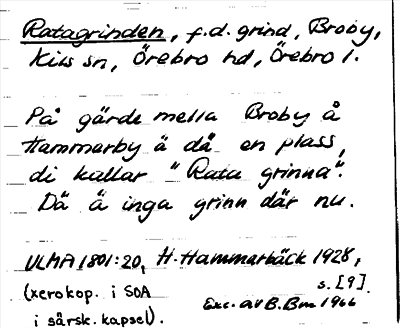 Ratagrinden, f.d. grind, Broby,
Kils sn, Örebro hd, Örebro l.
På gärde mella Broby å
Hammarby ä då en plass,
di kallar "Rata grinna".
Dä ä inga grinn där nu.
ULMA 1801:20, H. Hammarbäck 1928,
s. [9].
(xerokop. i SOA
i särsk. kapsel).
Exc. av B. Bm 1966